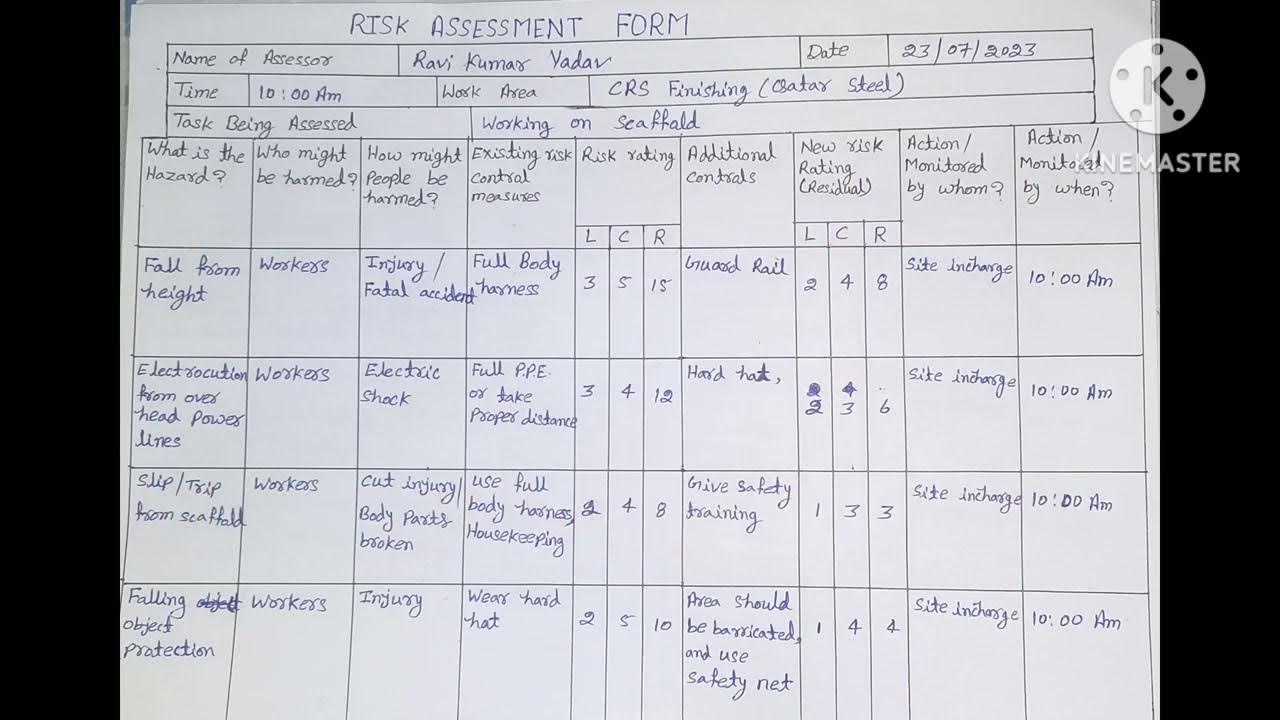 RISK ASSESSMENT FORM
Name of Assessor Ravi Kumar Yadav Date 23/07/2023
Time 10:00 Am Work Area CRS Finishing (Qatar Steel)
Task Being Assessed Working on Scaffald
What is the Hazard? Who might be harmed? How might People be harmed? Existing risk control measures Risk rating Additional controls New risk Rating (Residual) Action/ Monitored by whom? Action/ Monitored by when?
L C R L C R
Fall from height Workers Injury/ Fatal accident Full Body harness 3 5 15 Guard Rail 2 4 8 Site incharge 10:00 Am
Electrocution from over head power lines Workers Electric shock Full P.P.E. or take Proper distance 3 4 12 Hard hat, 2 3 6 Site incharge 10:00 Am
Slip/Trip from scaffold Workers Cut injury/ Body Parts broken use full body harness, Housekeeping 2 4 8 Give safety training 1 3 3 Site incharge 10:00 Am
Falling object protection Workers Injury Wear hard hat 2 5 10 Area should be barricated, and use safety net 1 4 4 Site incharge 10:00 Am
KINEMASTER